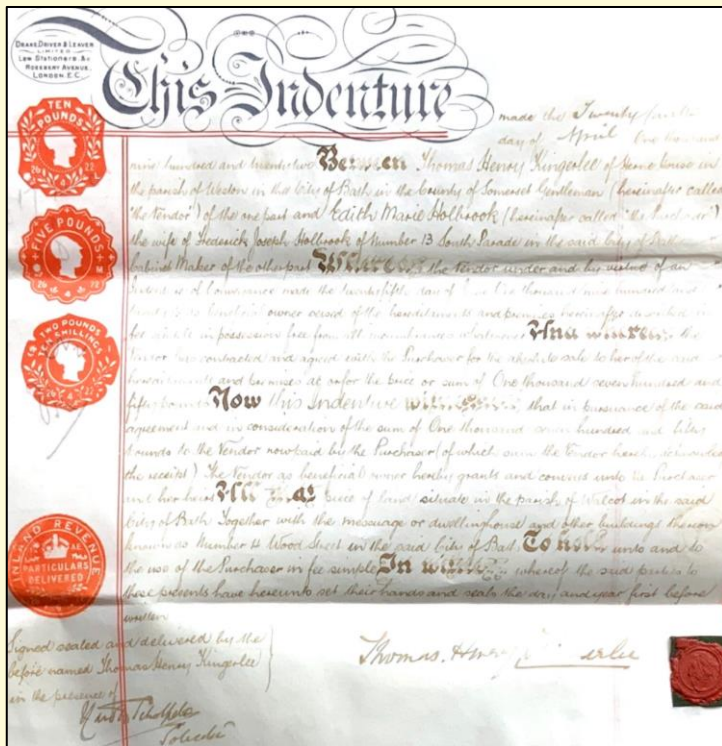 DRAKE, DRIVER & LEAVER
LIMITED
Law Stationers &c
ROSEBERY AVENUE,
LONDON E.C.
This Indenture
made the Twenty
day of April One thousand
nine hundred and twenty two Between Thomas Henry Kingerlee of Herne House in
the parish of Weston in the City of Bath in the County of Somerset Gentleman (hereinafter called
"the Vendor") of the one part and Edith Marie Holbrook (hereinafter called "the Purchaser")
the wife of Frederick Joseph Holbrook of Number 13 South Parade in the said City of Bath
Cabinet Maker of the other part Whereas the Vendor under and by virtue of an
Indenture of Conveyance made the twenty fifth day of One thousand nine hundred and
beneficial owner seized of the hereditaments and premises hereinafter described in
fee simple in possession free from all incumbrances And whereas the
Vendor has contracted and agreed with the Purchaser for the absolute sale to her of the said
hereditaments and premises at or for the price or sum of One thousand seven hundred and
fifty pounds Now this Indenture witnesseth that in pursuance of the said
agreement and in consideration of the sum of One thousand seven hundred and fifty
Pounds to the Vendor now paid by the Purchaser (of which sum the Vendor hereby acknowledges
the receipt) The Vendor as beneficial owner hereby grants and conveys unto the Purchaser
and her heirs All that piece of land situate in the parish of Walcot in the said
City of Bath Together with the messuage or dwellinghouse and other buildings thereon
known as Number 4 Wood Street in the said City of Bath To hold unto and to
the use of the Purchaser in fee simple In witness whereof the said parties to
these presents have hereunto set their hands and seals the day and year first before
written
Signed sealed and delivered by the
before named Thomas Henry Kingerlee
in the presence of
Solicitor
Thomas Henry Kingerlee
TEN
POUNDS
26 4 22
FIVE POUNDS
26 4 22
TWO POUNDS
TEN SHILLINGS
INLAND REVENUE
PARTICULARS
DELIVERED